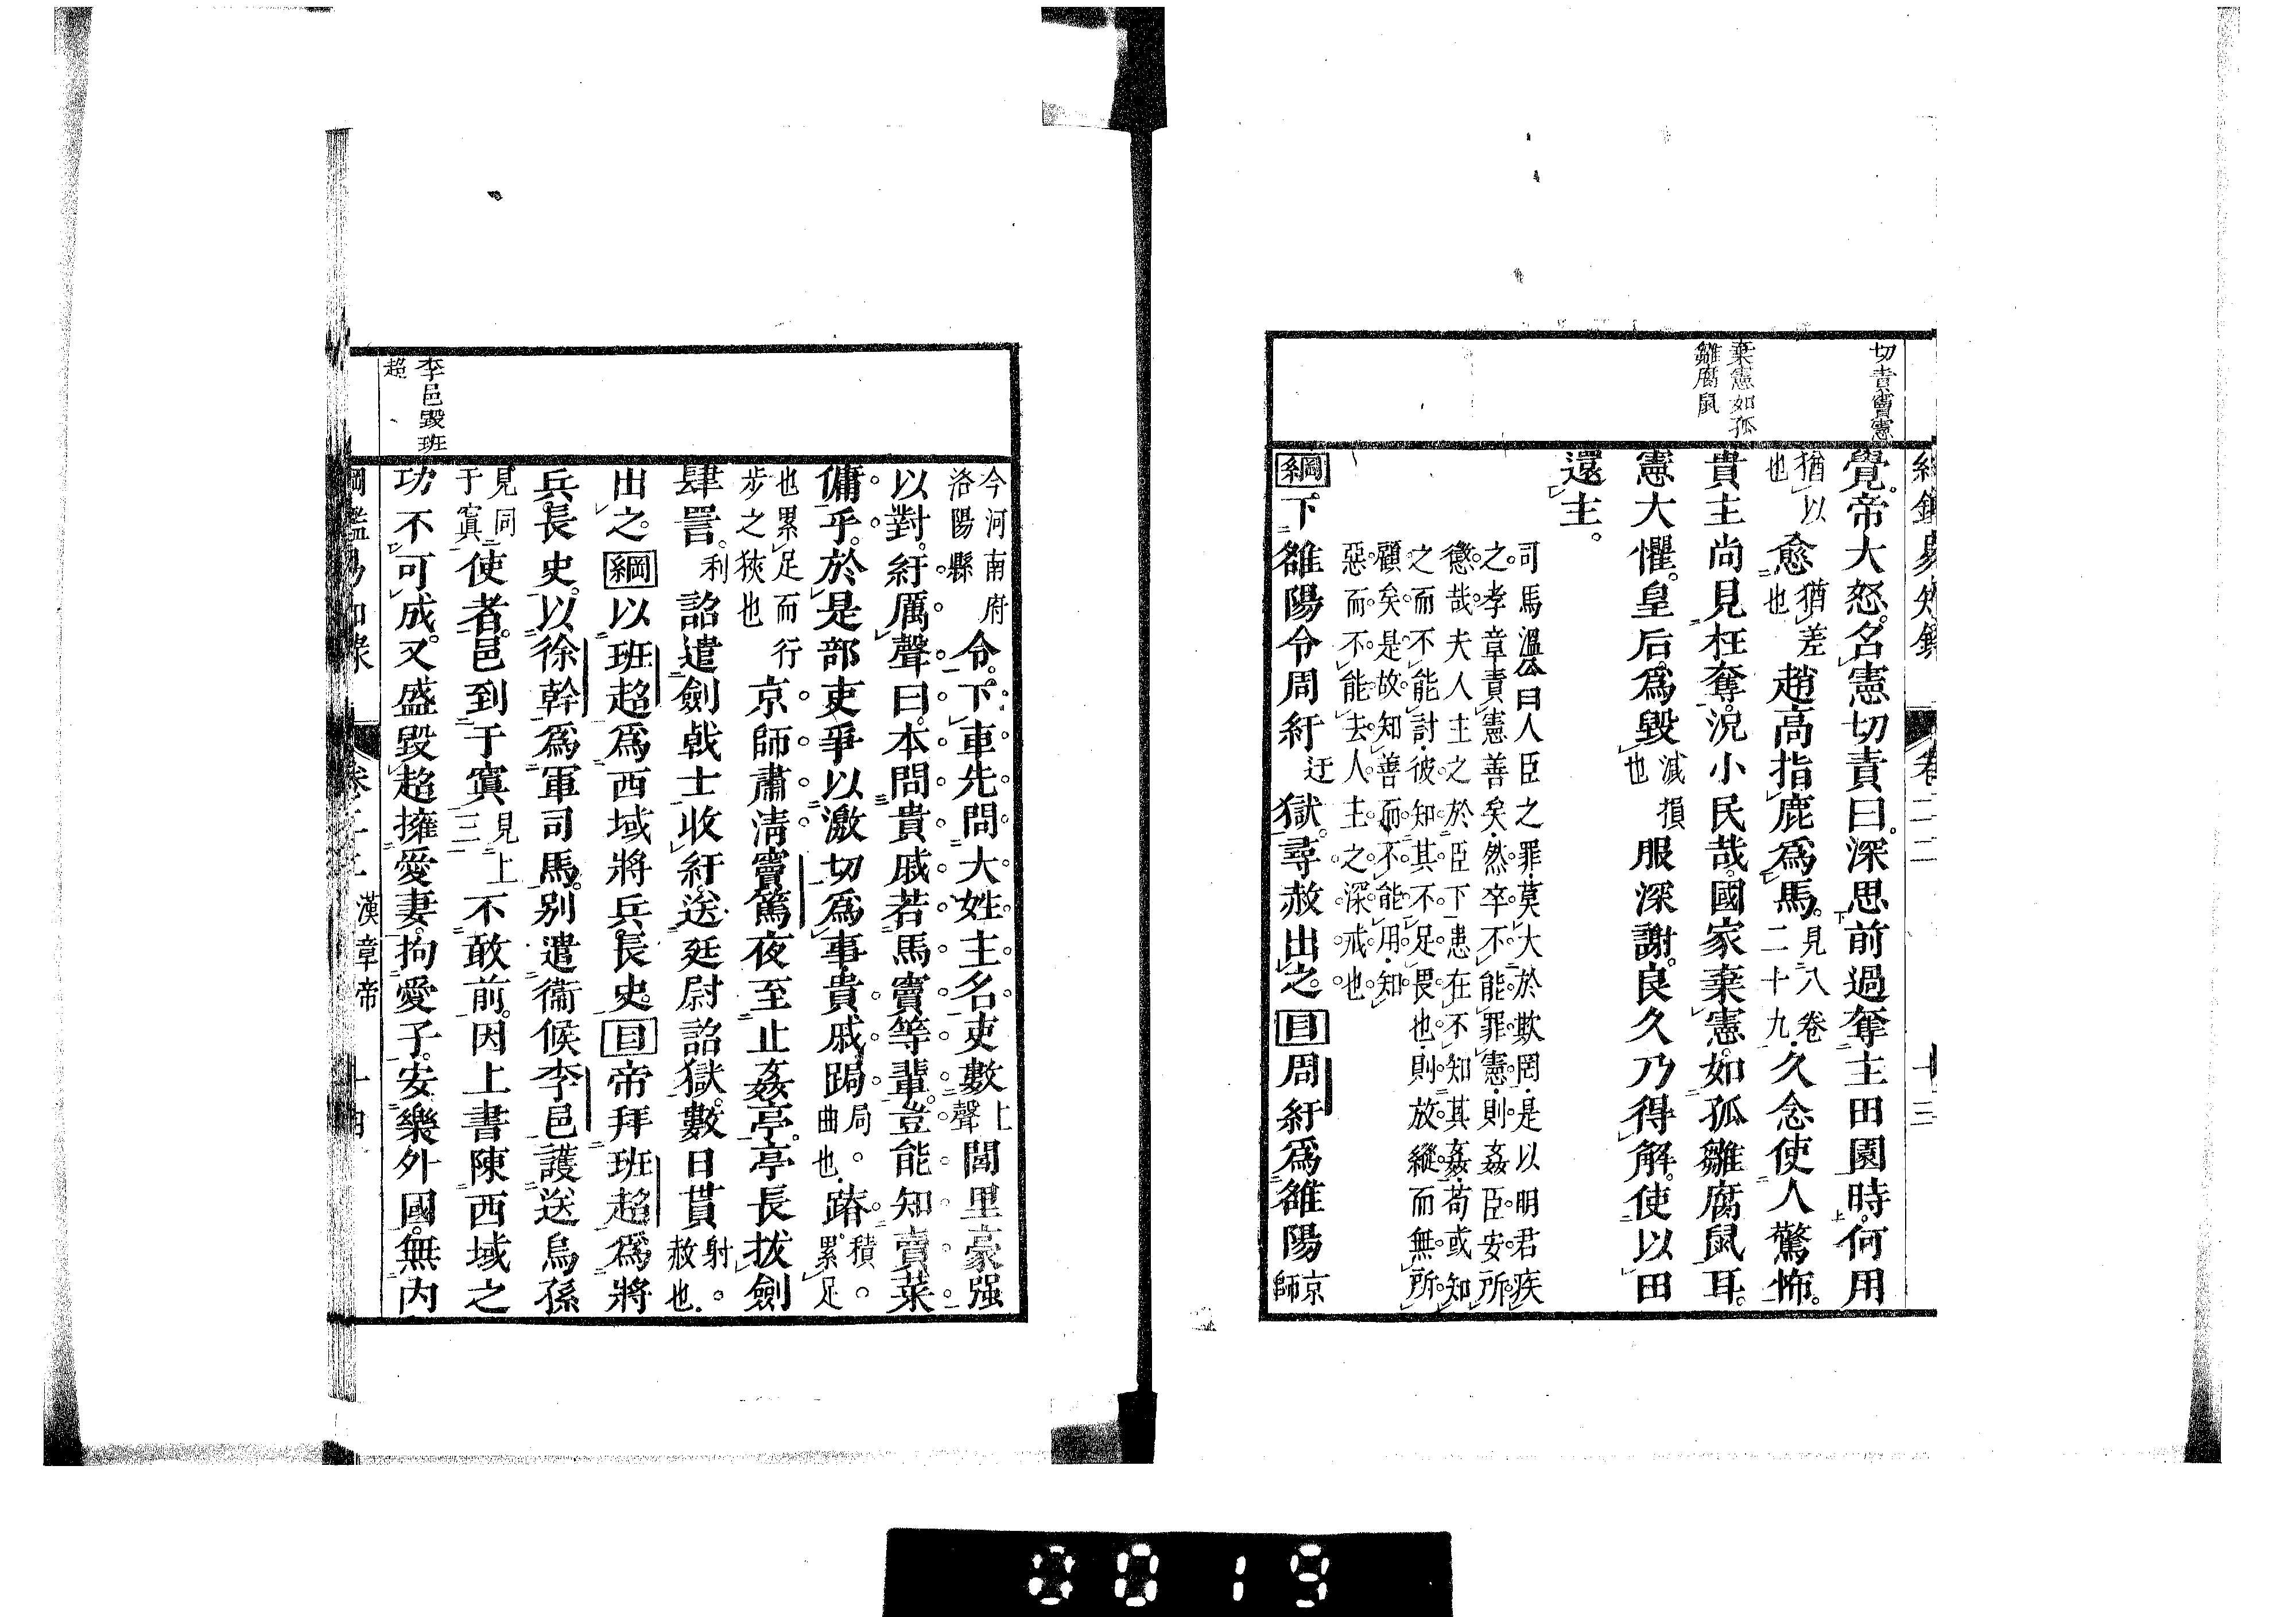 切責竇憲
棄憲如孤
雛腐鼠
覺。帝大怒。名憲切責曰。深思前過奪主田園時。何用
猶以
也
愈
猶差
也
趙高指鹿爲馬。
見八卷
二十九
久念使人驚怖。
貴主尚見枉奪。況小民哉。國家棄憲。如孤雛腐鼠耳。
憲大懼。皇后爲毀
減損
也
服深謝。良久乃得解。使以田
還主。
司馬溫公曰人臣之罪莫大於欺罔是以明君疾
之孝章責憲善矣然卒不能罪憲則姦臣安所
懲哉夫人主之於臣下患在不知其姦苟或知
之而不能討彼知其不足畏也則放縱而無所
顧矣是故知善而不能用知
惡而不能去人主之深戒也
綱下雒陽令周紆
迂
獄。尋赦出之。目周紆爲雒陽
京
師
卷二十二
十三
今河南府
洛陽縣
令。下車先問大姓主名。吏數
上
聲
閭里豪强
以對。紆厲聲曰。本問貴戚若馬竇等輩。豈能知賣菜
傭乎。於是部吏爭以激切爲事。貴戚跼
局
曲也
蹐
積
累足
也累足而行
步之狹也
京師肅淸。竇篤夜至止姦亭。亭長拔劍
肆詈。
利
詔遣劍戟士收紆。送延尉詔獄。數日貰
射
赦也
出之。綱以班超爲西域將兵長史。目帝拜班超爲將
兵長史。以徐幹爲軍司馬。别遣衞候李邑護送烏孫
見同
于寘
使者。邑到于寘
見上
三
不敢前。因上書陳西域之
功不可成。又盛毀超擁愛妻。抱愛子。安樂外國。無內
李邑毀班
超
綱鑑易知錄
漢章帝